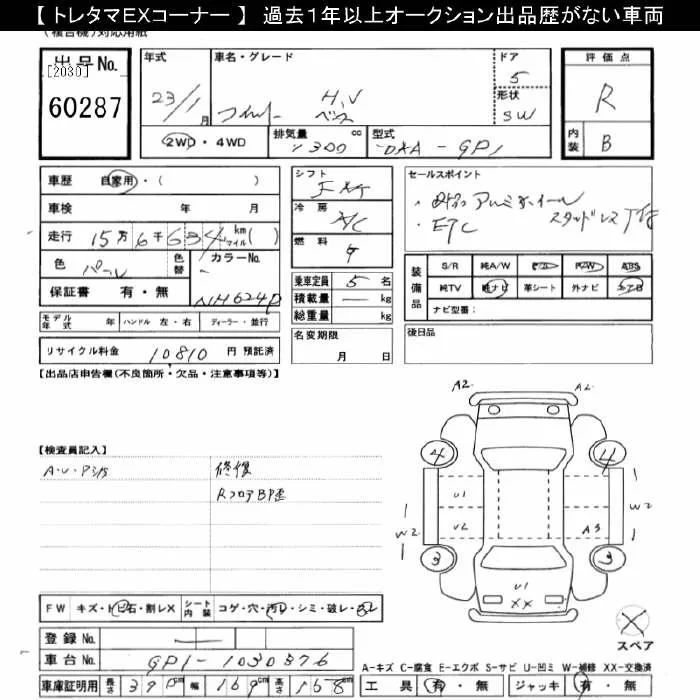 【 トレタマEXコーナー 】 過去1年以上オークション出品歴がない車両
(複合機)対応用紙
出品No. 年式 車名・グレード ドア 評価点
[2030] 5
60287 23/1月 H.V 形状 R
SW
2WD・4WD 排気量 cc 型式 内装 B
1300 DAA-GP1
車歴 自家用・( ) シフト セールスポイント
FAT
車検 年 月 冷房 ・社外アルミホイール
A/C スタッドレス付
走行 15万6千634 km マイル( ) 燃料 ・ETC
G
色 パール 色替 カラーNo.
NH624P
保証書 有・無
乗車定員 5名
積載量 ー kg
総重量 kg
装備品 S/R 純A/W エアB P/W ABS
純TV 純ナビ 革シート 外ナビ
ナビ型番:
モデル年式 年 ハンドル 左・右 ディーラー・並行
名変期限
月 日
後日品
リサイクル料金 10810 円 預託済
【出品店申告欄(不良箇所・欠品・注意事項等)】
A2 A2
【検査員記入】
A・U・P 3/5 修復
RフロアBP歪
4 4
U1
W2 U2 A3 W2
3 3
U1
XX
FW キズ・トビ石・割レX シート内装 コゲ・穴・汚レ・シミ・破レ・スレ
登録No. ー
スペア
車台No. GP1-1030876
A-キズ C-腐食 E-エクボ S-サビ U-凹ミ W-補修 XX-交換済
車庫証明用 長さ 390cm 幅 169cm 高さ 158cm 工具 有・無 ジャッキ 有・無